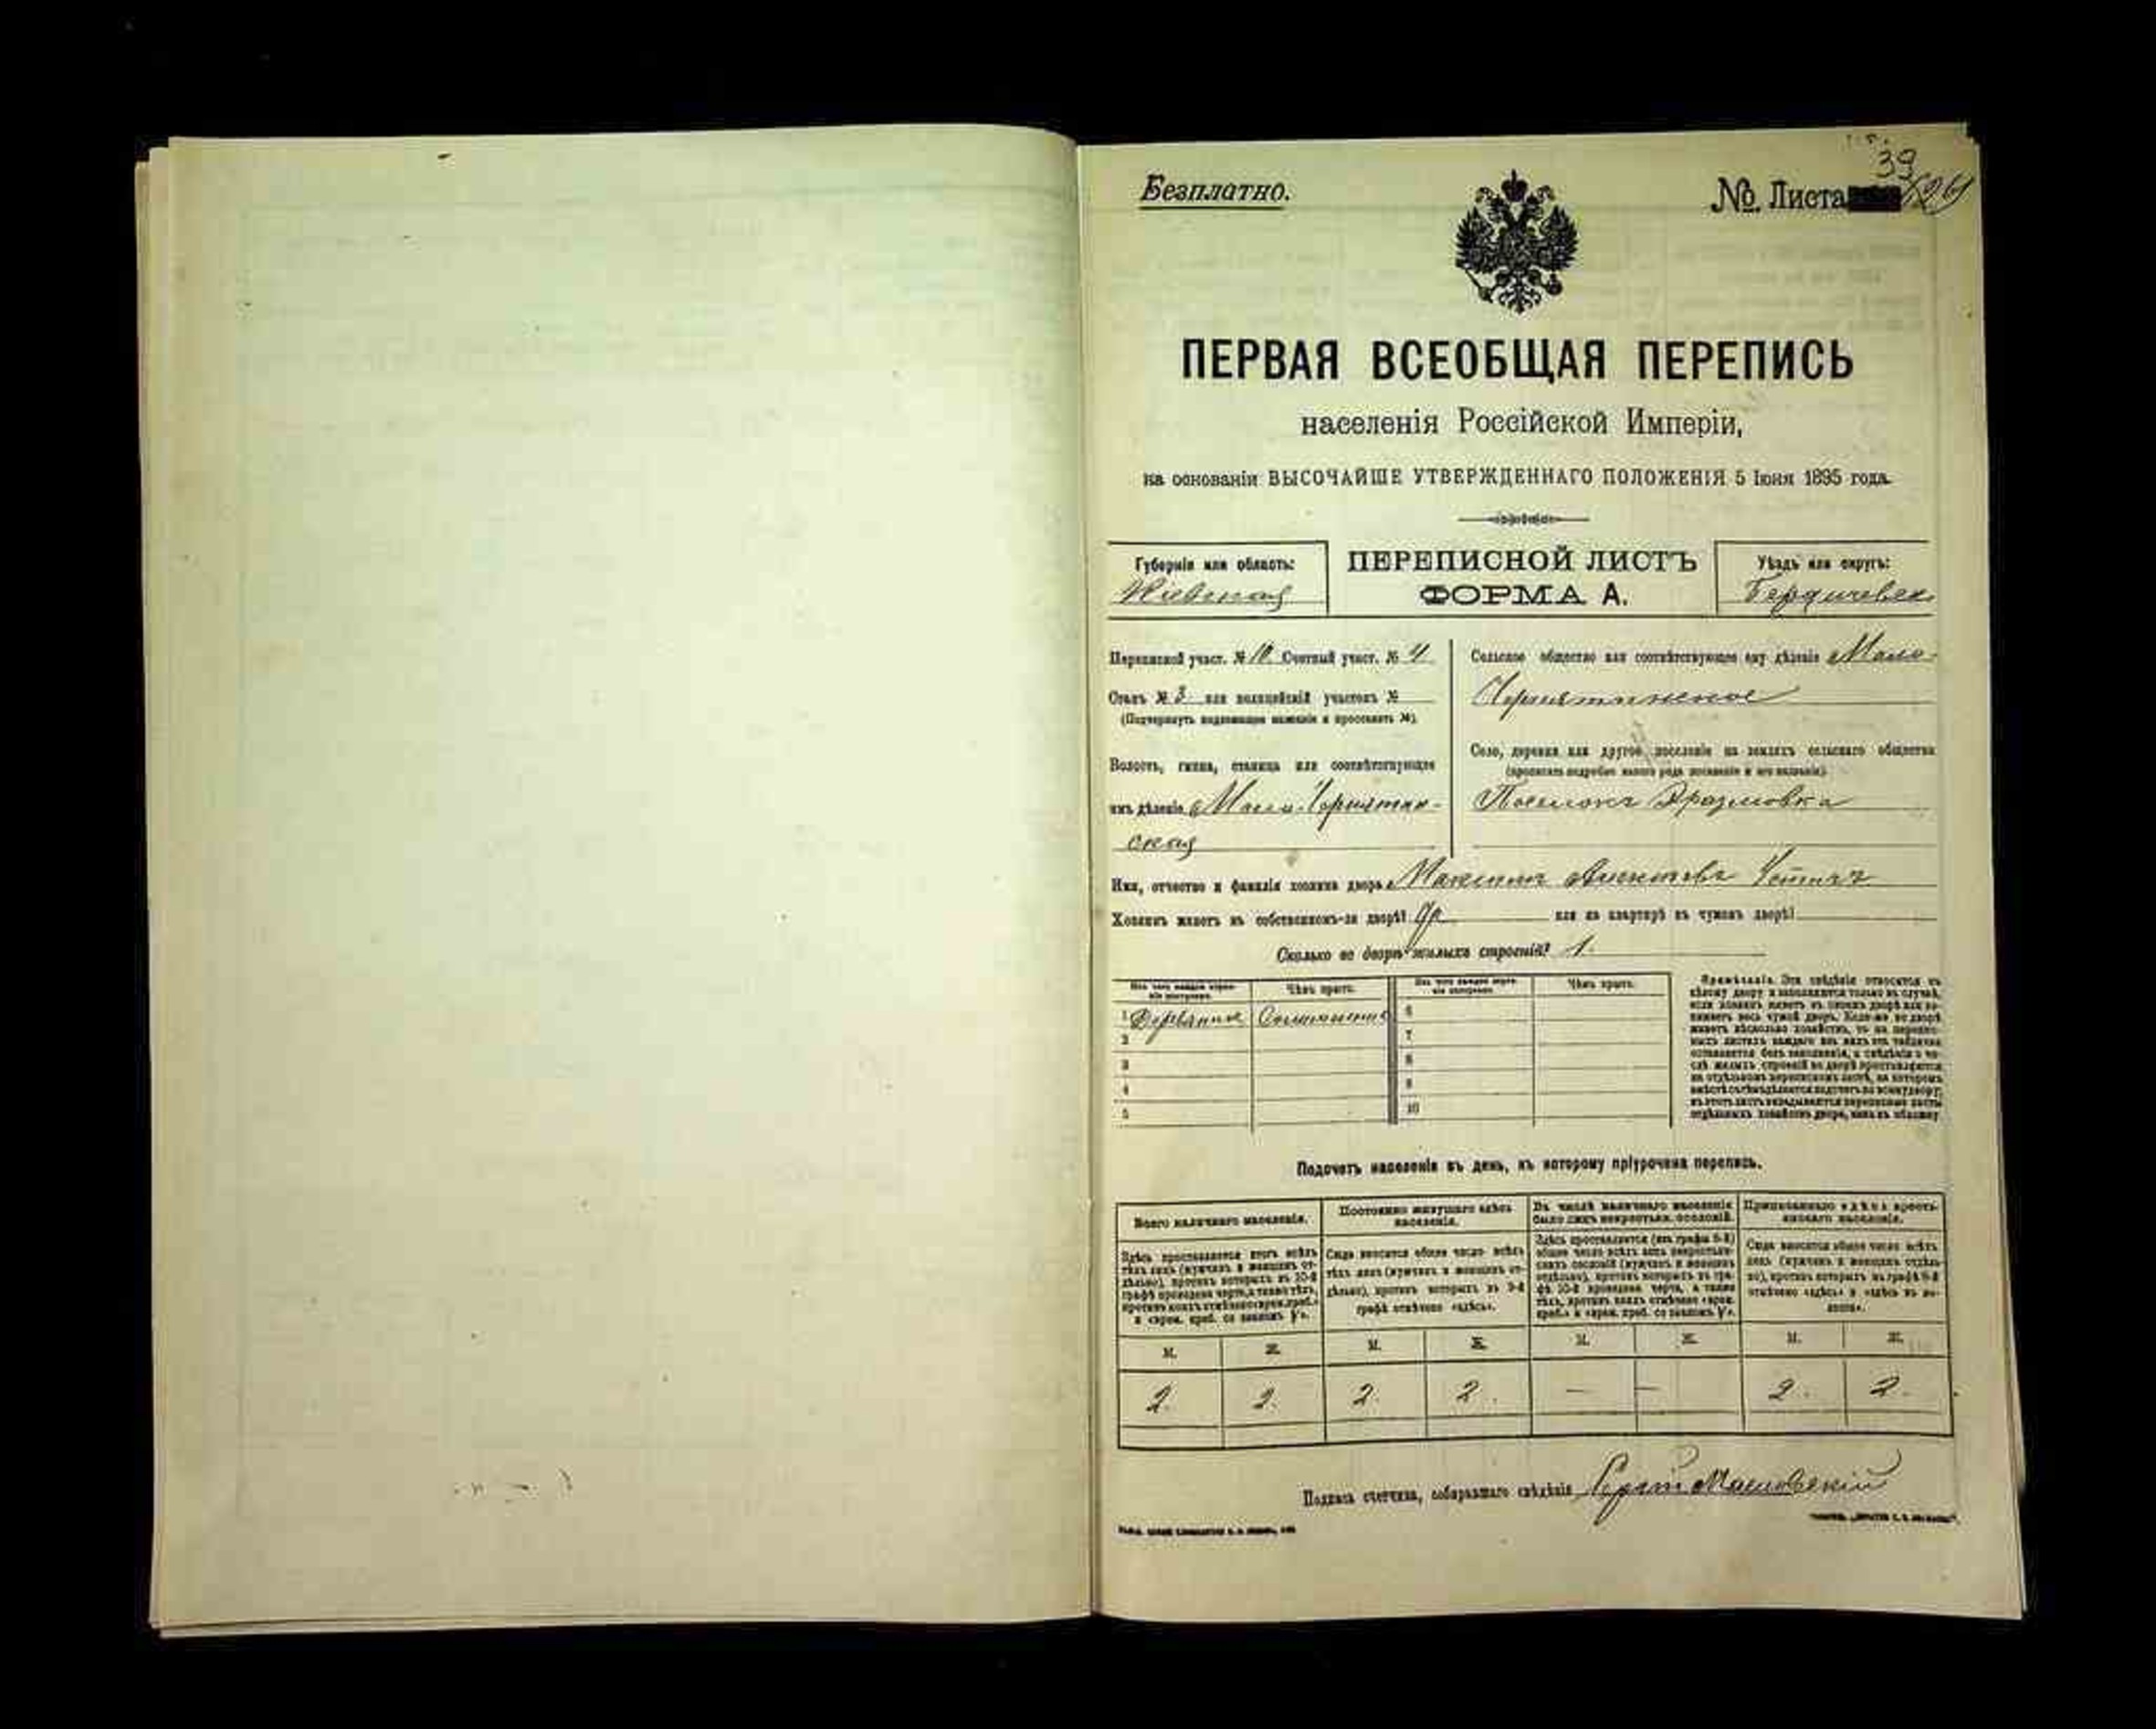 Безплатно.
№ Листа
39
ПЕРВАЯ ВСЕОБЩАЯ ПЕРЕПИСЬ
населенія Россійской Имперіи,
на основаніи ВЫСОЧАЙШЕ УТВЕРЖДЕННАГО ПОЛОЖЕНІЯ 5 Іюня 1895 года.
Губернія или область:
Кіевская
ПЕРЕПИСНОЙ ЛИСТЪ
ФОРМА А.
Уѣздъ или округъ:
Бердичевск
Переписной участ. № 10 Счетный участ. № 4
Станъ № 3 или полицейскій участокъ №
(Подчеркнуть надлежащее названіе и проставить №).
Волость, гмина, станица или соотвѣтствующее
имъ дѣленіе Мало-Чернятин-
ская
Сельское общество или соотвѣтствующее ему дѣленіе Мало-
Чернятинское
Село, деревня или другое поселеніе на земляхъ сельскаго общества
(прописать подробно какого рода поселеніе и его названіе).
Поселокъ Эразмовка
Имя, отчество и фамилія хозяина двора Максимъ
Хозяинъ живетъ въ собственномъ-ли дворѣ? или на квартирѣ въ чужомъ дворѣ?
Сколько во дворѣ жилыхъ строеній? 1.
Изъ чего каждое строеніе построено. Чѣмъ крыто. Изъ чего каждое строеніе построено. Чѣмъ крыто.
1 6
2 7
3 8
4 9
5 10
Примѣчаніе. Эти свѣдѣнія относятся къ
цѣлому двору и заполняются только въ случаѣ,
если хозяинъ живетъ въ своемъ дворѣ или за-
нимаетъ весь чужой дворъ. Коли-же во дворѣ
живетъ нѣсколько хозяйствъ, то на перепис-
ныхъ листахъ каждаго изъ нихъ эта табличка
оставляется безъ заполненія, а свѣдѣнія о чи-
слѣ жилыхъ строеній во дворѣ проставляются
на отдѣльномъ переписномъ листѣ, на которомъ
Подсчетъ населенія въ день, къ которому пріурочена перепись.
Всего наличнаго населенія.
Здѣсь проставляется итогъ всѣхъ
тѣхъ лицъ (мужчинъ и женщинъ от-
дѣльно), противъ которыхъ въ 10-й
графѣ проведена черта, а также тѣхъ,
противъ коихъ отмѣчено «врем. преб.»
и «врем. преб. со знакомъ V».
Постоянно живущаго здѣсь
населенія.
Сюда вносится общее число всѣхъ
тѣхъ лицъ (мужчинъ и женщинъ от-
дѣльно), противъ которыхъ въ 9-й
графѣ отмѣчено «здѣсь».
Въ числѣ наличнаго населенія
было лицъ некрестьян. сословій.
Здѣсь проставляется (изъ графы 5-й)
общее число всѣхъ лицъ некрестьян-
скихъ сословій (мужчинъ и женщинъ
отдѣльно), противъ которыхъ въ гра-
фѣ 10-й проведена черта, а также
тѣхъ, противъ коихъ отмѣчено «врем.
преб.» и «врем. преб. со знакомъ V».
Приписаннаго здѣсь кресть-
янскаго населенія.
Сюда вносится общее число всѣхъ
лицъ (мужчинъ и женщинъ отдѣль-
но), противъ которыхъ въ графѣ 8-й
отмѣчено «здѣсь» и «здѣсь въ во-
лости».
М. Ж. М. Ж. М. Ж. М. Ж.
2. 2. 2. 2. — — 2. 2.
Подпись счетчика, собиравшаго свѣдѣнія